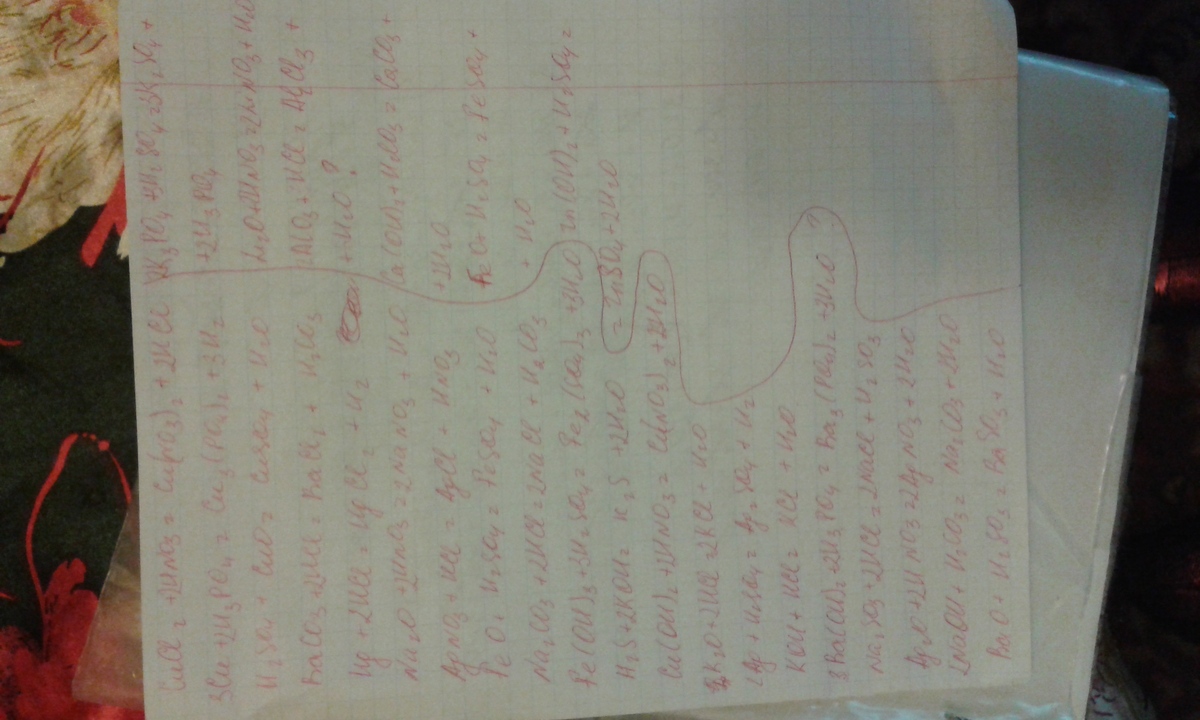 CuCl2 + 2HNO3 = Cu(NO3)2 + 2HCl
3Cu + 2H3PO4 = Cu3(PO4)2 + 3H2
H2SO4 + CuO = CuSO4 + H2O
BaCO3 + 2HCl = BaCl2 + H2CO3
Hg + 2HCl = HgCl2 + H2
Na2O + 2HNO3 = 2NaNO3 + H2O
AgNO3 + HCl = AgCl + HNO3
FeO + H2SO4 = FeSO4 + H2O
Na2CO3 + 2HCl = 2NaCl + H2CO3
Fe(OH)3 + 3H2SO4 = Fe2(SO4)3 + 3H2O
H2S + 2KOH = K2S + 2H2O
Cu(OH)2 + 2HNO3 = Cu(NO3)2 + 2H2O
K2O + 2HCl = 2KCl + H2O
2Ag + H2SO4 = Ag2SO4 + H2
KOH + HCl = KCl + H2O
3Ba(OH)2 + 2H3PO4 = Ba3(PO4)2 + 3H2O
Na2SO3 + 2HCl = 2NaCl + H2SO3
Ag2O + 2HNO3 = 2AgNO3 + 2H2O
2NaOH + H2CO3 = Na2CO3 + 2H2O
BaO + H2SO3 = BaSO3 + H2O
2K3PO4 + 3H2SO4 = 3K2SO4 +
+ 2H3PO4
+ 2HNO3 = 2LiNO3 + H2O
+ HCl = AlCl3 +
+ H2O ?
Ca(OH)2 + H2CO3 = CaCO3 +
+ 2H2O
FeO + H2SO4 = FeSO4 +
+ H2O
Zn(OH)2 + H2SO4 =
= ZnSO4 + 2H2O